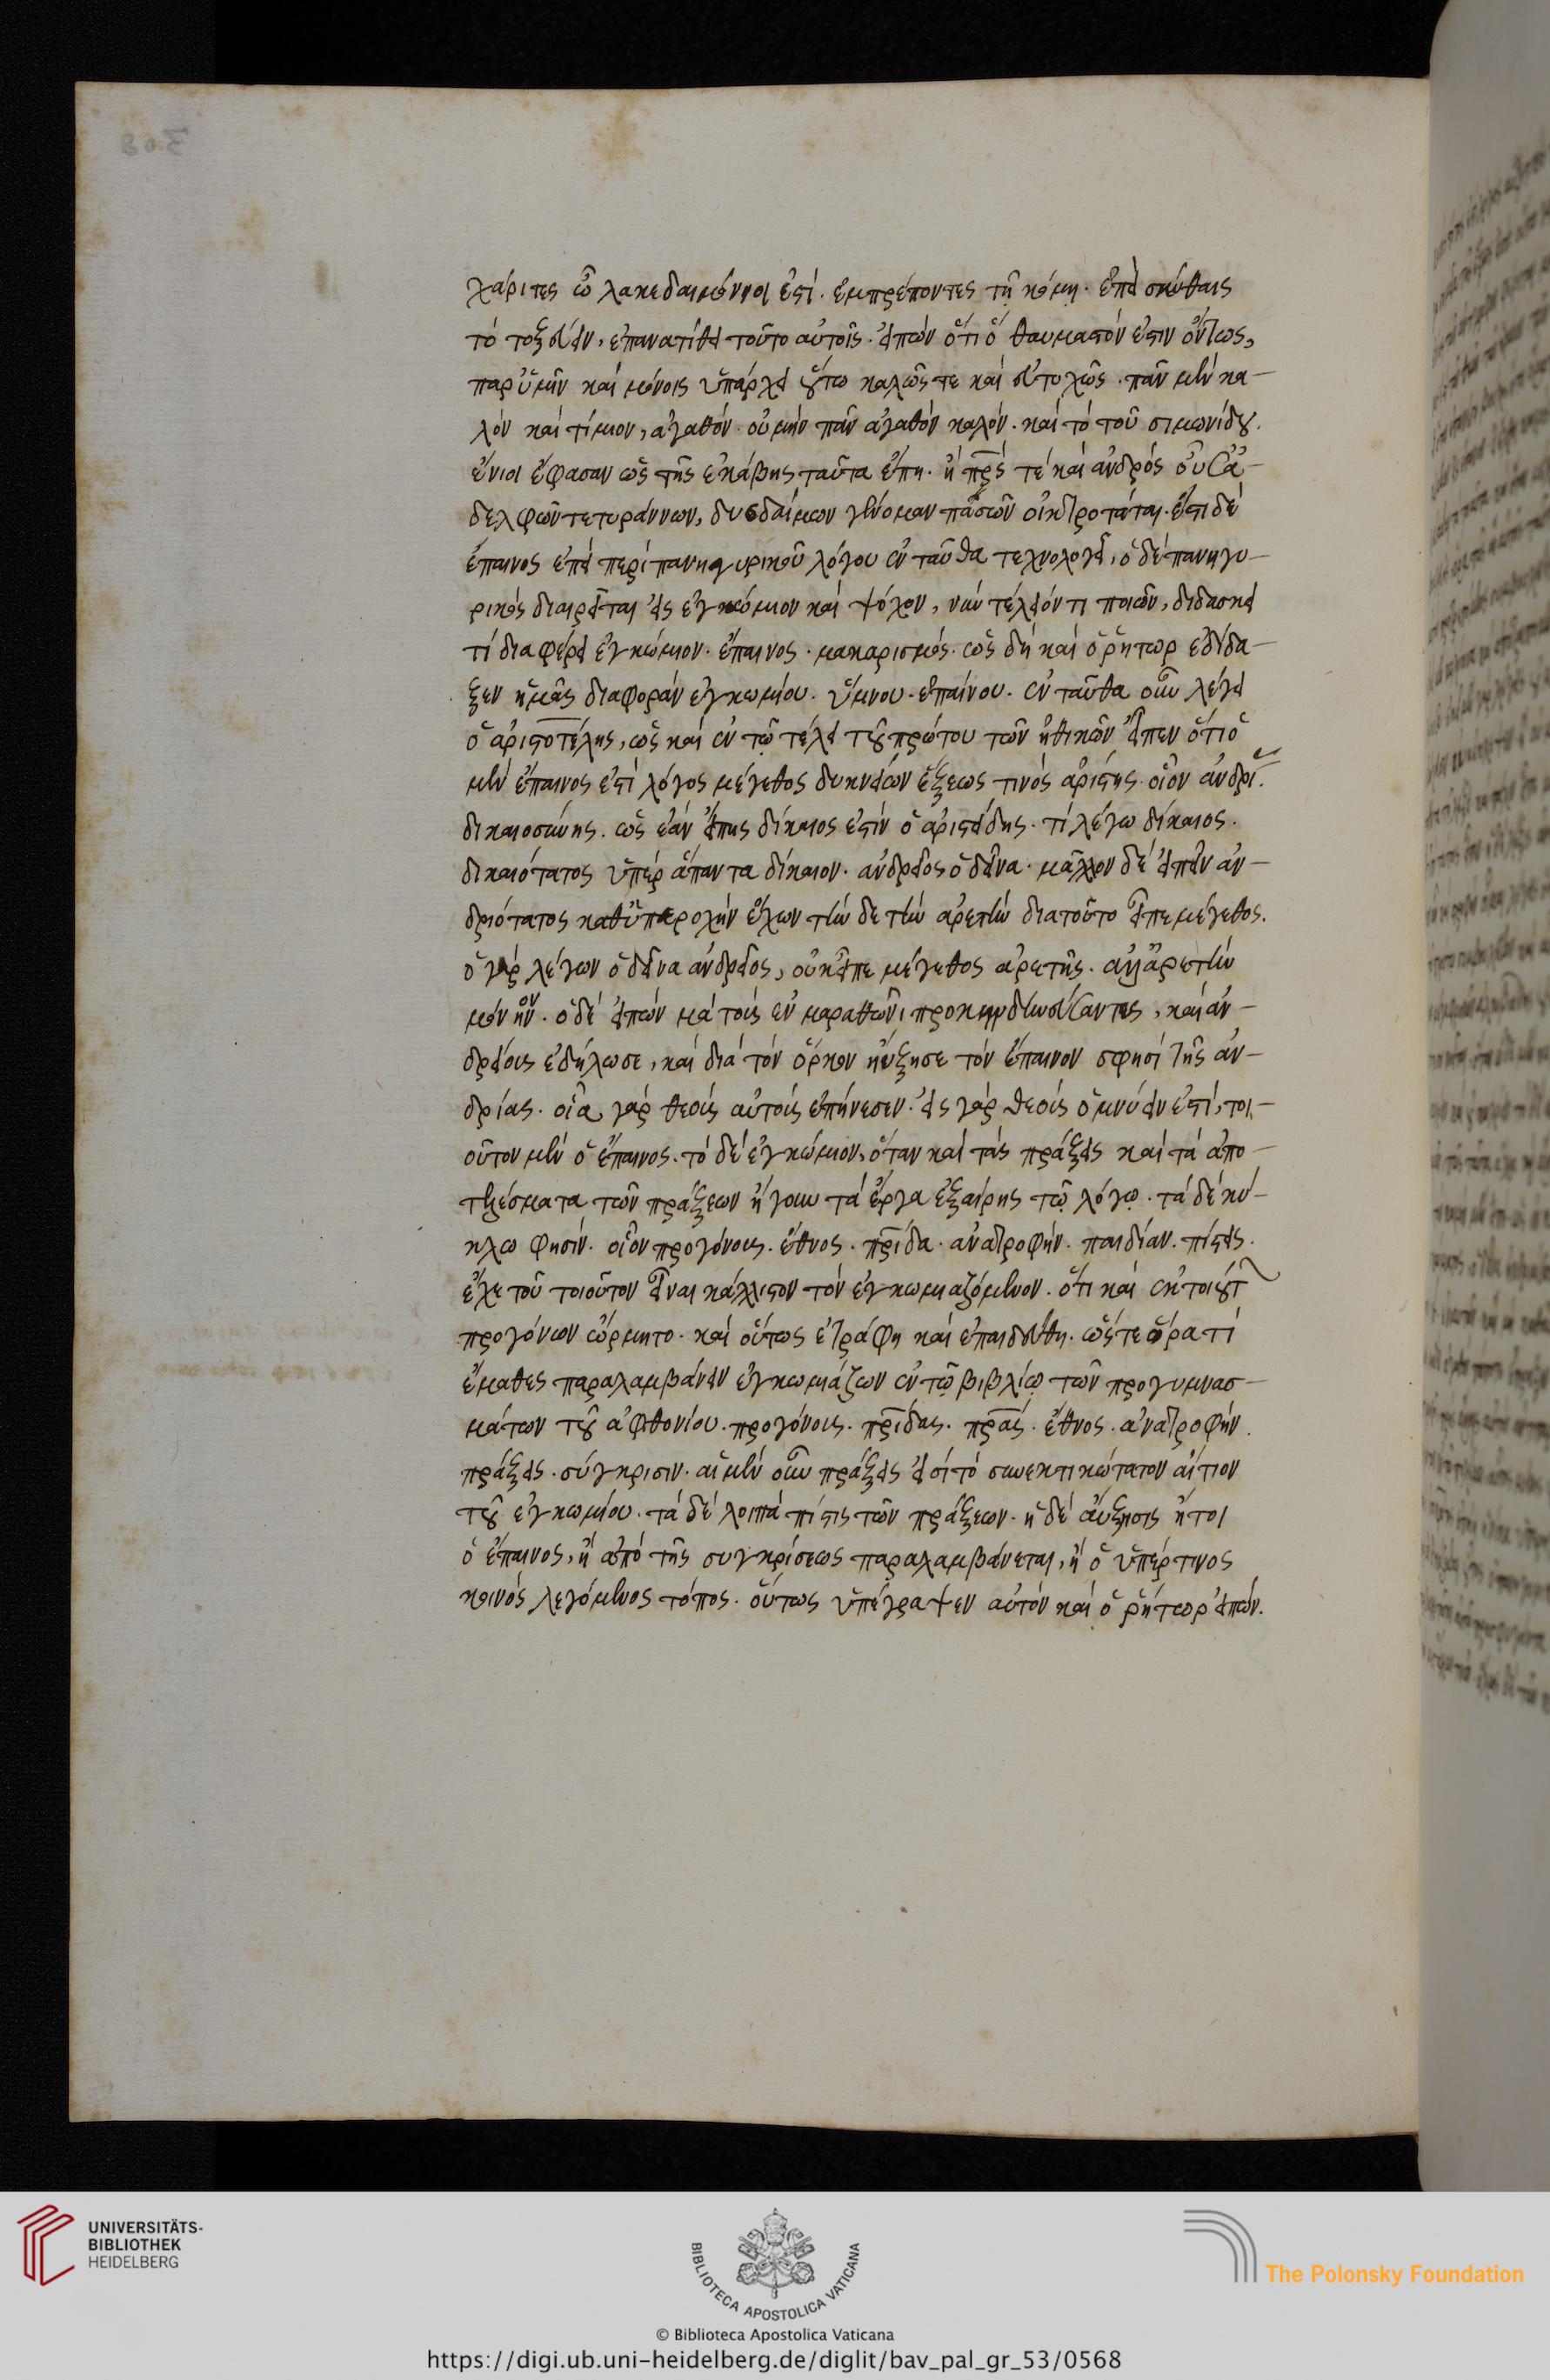 χάριτες ὦ λακεδαιμόνιοι ἐστί. ἐμπρέποντες τῇ κόμῃ. ἐπεὶ σκύθαις
τὸ τοξεύειν, ἐπανατίθει τοῦτο αὐτοῖς. εἰπὼν ὅτι ὃ θαυμαστόν ἐστιν ὄντως,
παρ' ὑμῖν καὶ μόνοις ὑπάρχει οὕτω καλῶς τε καὶ εὐτυχῶς. πᾶν μὲν κα-
λὸν καὶ τίμιον, ἀγαθόν. οὐ μὴν πᾶν ἀγαθὸν καλόν. καὶ τὸ τοῦ σιμωνίδου.
ἔνιοι ἔφασαν ὡς τῆς ἑκάβης ταῦτα ἔπη. ἡ πρς τέ καὶ ἀνδρὸς οὖσα ἀ-
δελφῶν τε τυράννων, δυσδαίμων γενόμαν πασῶν οἰκτροτάται. ἔτι δὲ
ἔπαινος ἐπεὶ περὶ πανηγυρικοῦ λόγου ἐνταῦθα τεχνολογεῖ, ὁ δὲ πανηγυ-
ρικὸς διαιρεῖται εἰς ἐγκώμιον καὶ ψόγον, νῦν τέλειόν τι ποιῶν, διδάσκει
τί διαφέρει ἐγκώμιον. ἔπαινος. μακαρισμός. ὡς δὴ καὶ ὁ ῥήτωρ ἐδίδα-
ξεν ἡμᾶς διαφορὰν ἐγκωμίου. ὕμνου. ἐπαίνου. ἐνταῦθα οὖν λέγει
ὁ ἀριστοτέλης, ὡς καὶ ἐν τῷ τέλει τοῦ πρώτου τῶν ἠθικῶν εἶπεν ὅτι ὁ
μὲν ἔπαινος ἐστὶ λόγος μέγεθος δεικνύων ἕξεως τινὸς ἀρίστης. οἷον ἀνδρί
δικαιοσύνης. ὡς ἐὰν εἴπῃς δίκαιος ἐστὶν ὁ ἀριστείδης. τί λέγω δίκαιος.
δικαιότατος ὑπὲρ ἅπαντα δίκαιον. ἀνδρεῖος ὁ δεῖνα. μᾶλλον δὲ εἰπεῖν ἀν-
δριότατος καθ' ὑπεροχὴν ἔχων τήν δε τὴν ἀρετὴν διατοῦτο εἶπε μέγεθος.
ὁ γὰρ λέγων ὁ δεῖνα ἀνδρεῖος, οὐκ εἶπε μέγεθος ἀρετῆς. ἀλλ' ἀρετὴν
μόνην. ὁ δὲ εἰπὼν μὰ τοὺς ἐν μαραθῶνι προκινδυνεύσαντες, καὶ ἀν-
δρείους ἐδήλωσε, καὶ διὰ τὸν ὅρκον ηὔξησε τὸν ἔπαινον σφησὶ τῆς ἀν-
δρίας. οἷα γὰρ θεοὺς αὐτοὺς ἐπήνεσεν. εἰς γὰρ θεοὺς ὀμνύειν ἐστί, τοι-
οῦτον μὲν ὁ ἔπαινος. τὸ δὲ ἐγκώμιον, ὅταν καὶ τὰς πράξεις καὶ τὰ ἀπο-
τελέσματα τῶν πράξεων ἤγουν τὰ ἔργα ἐξαίρῃς τῷ λόγῳ. τὰ δὲ κύ-
κλω φησίν. οἷον προγόνους. ἔθνος. πρίδα. ἀνατροφήν. παιδίαν. πίστεις.
ἔχε τοῦ τοιοῦτον εἶναι κάλλιστον τὸν ἐγκωμιαζόμενον. ὅτι καὶ ἐκ τοιούτ
προγόνων ὥρμητο. καὶ οὕτως ἐτράφη καὶ ἐπαιδεύθη. ὥστε ὅρα τί
ἔμαθες παραλαμβάνειν ἐγκωμιάζων ἐν τῷ βιβλίῳ τῶν προγυμνασ-
μάτων τοῦ ἀφθονίου. προγόνους. πρίδας. πρας. ἔθνος. ἀνατροφήν.
πράξεις. σύγκρισιν. αἱ μὲν οὖν πράξεις εἰσὶ τὸ συνεκτικώτατον αἴτιον
τοῦ ἐγκωμίου. τὰ δὲ λοιπὰ πίστις τῶν πράξεων. ἡ δὲ αὔξησις ἤτοι
ὁ ἔπαινος, ἢ ἀπὸ τῆς συγκρίσεως παραλαμβάνεται, ἢ ὁ ὑπέρ τινος
κοινὸς λεγόμενος τόπος. οὕτως ὑπέγραψεν αὐτὸν καὶ ὁ ῥήτωρ εἰπών.
UNIVERSITÄTS-
BIBLIOTHEK
HEIDELBERG
BIBLIOTECA APOSTOLICA VATICANA
The Polonsky Foundation
© Biblioteca Apostolica Vaticana
https://digi.ub.uni-heidelberg.de/diglit/bav_pal_gr_53/0568